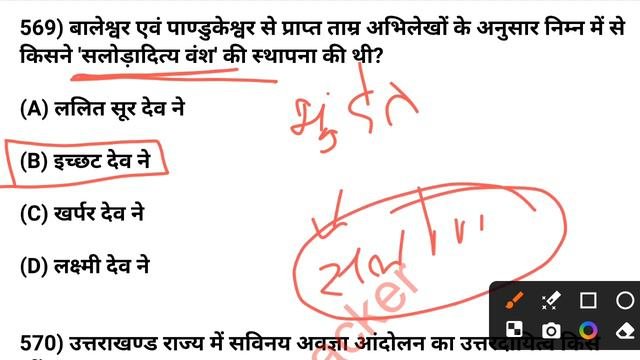 569) बालेश्वर एवं पाण्डुकेश्वर से प्राप्त ताम्र अभिलेखों के अनुसार निम्न में से
किसने 'सलोड़ादित्य वंश' की स्थापना की थी?
(A) ललित सूर देव ने
(B) इच्छट देव ने
(C) खर्पर देव ने
(D) लक्ष्मी देव ने
acker
570) उत्तराखण्ड राज्य में सविनय अवज्ञा आंदोलन का उत्तरदायित्व किसे